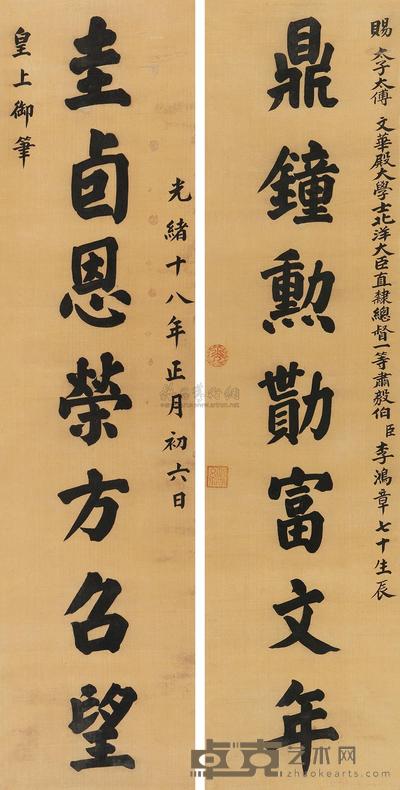 賜 太子太傅 文華殿大學士北洋大臣直隸總督一等肅毅伯臣李鴻章七十生辰
鼎鐘勲勩富文年
光緒十八年正月初六日
圭卣恩榮方召望
皇上御筆
卓克艺术网
www.zhuokearts.com